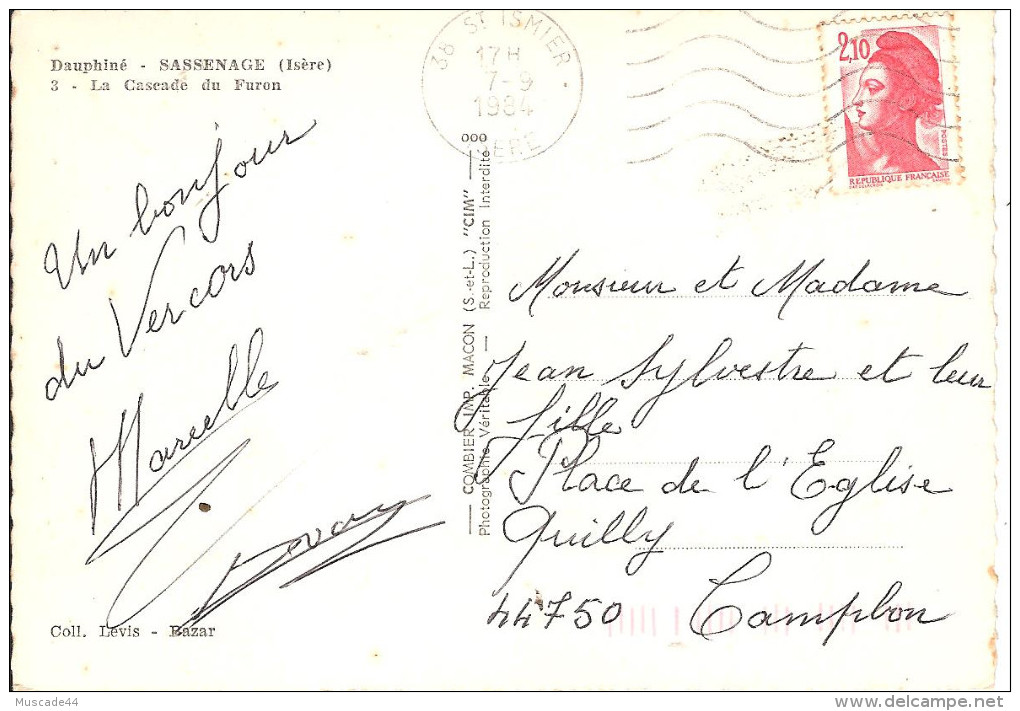 Dauphiné - SASSENAGE (Isère)
3 - La Cascade du Furon
Un bonjour
du Vercors
Marcelle
Coll. Levis - Bazar
38 ST ISMIER
17H
7-9
1984
ISERE
2,10
POSTES
REPUBLIQUE FRANÇAISE
COMBIER IMP. MACON (S.-et-L.) "CIM"
Photographie Véritable — Reproduction Interdite
Monsieur et Madame
Jean Sylvestre et leur
fille
Place de l'Eglise
Quilly
44750 Campbon
Muscade44
www.delcampe.net